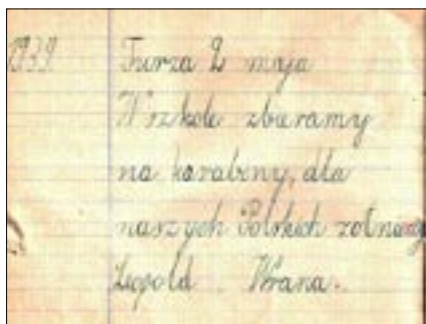 1939 Turza 2 maja
W szkole zbieramy
na karabiny, dla
naszych Polskich żołnierzy
Leopold Wrana.